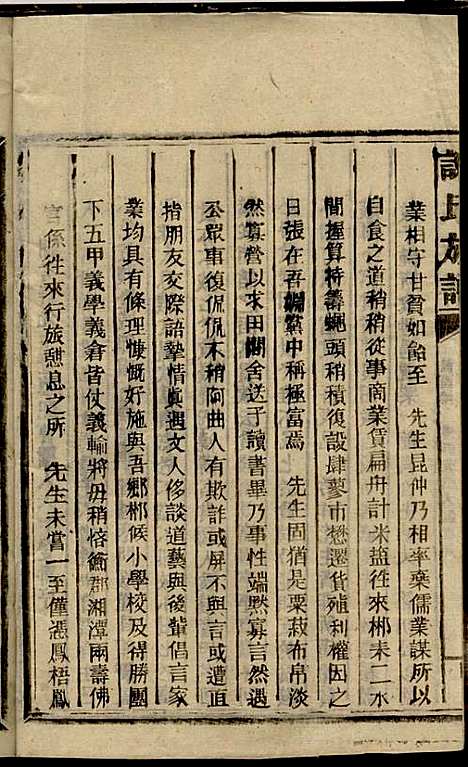 氏族譜
業相守甘貧如飴至　先生昆仲乃相率棄儒業謀所以
自食之道稍稍從事商業賃扁舟計米鹽往來郴耒二水
間握算持籌蠅頭稍稍積復設肆蓼市懋遷貨殖利權因之
日張在吾鄰黨中稱極富焉　先生固猶是粟菽布帛淡
然寡營以求田問舍送子讀書畢乃事性端默寡言然遇
公眾事復侃侃不稍阿曲人有欺詐或屏不與言或遭直
指朋友交際語摯情真遇文人侈談道藝與後輩倡言家
業均具有條理慷慨好施與吾鄉郴候小學校及得勝團
下五甲義學義倉皆仗義輸將毋稍悋衡郡湘潭南壽佛
宮係往來行旅憇息之所　先生未嘗一至僅憑鳳梧鳳